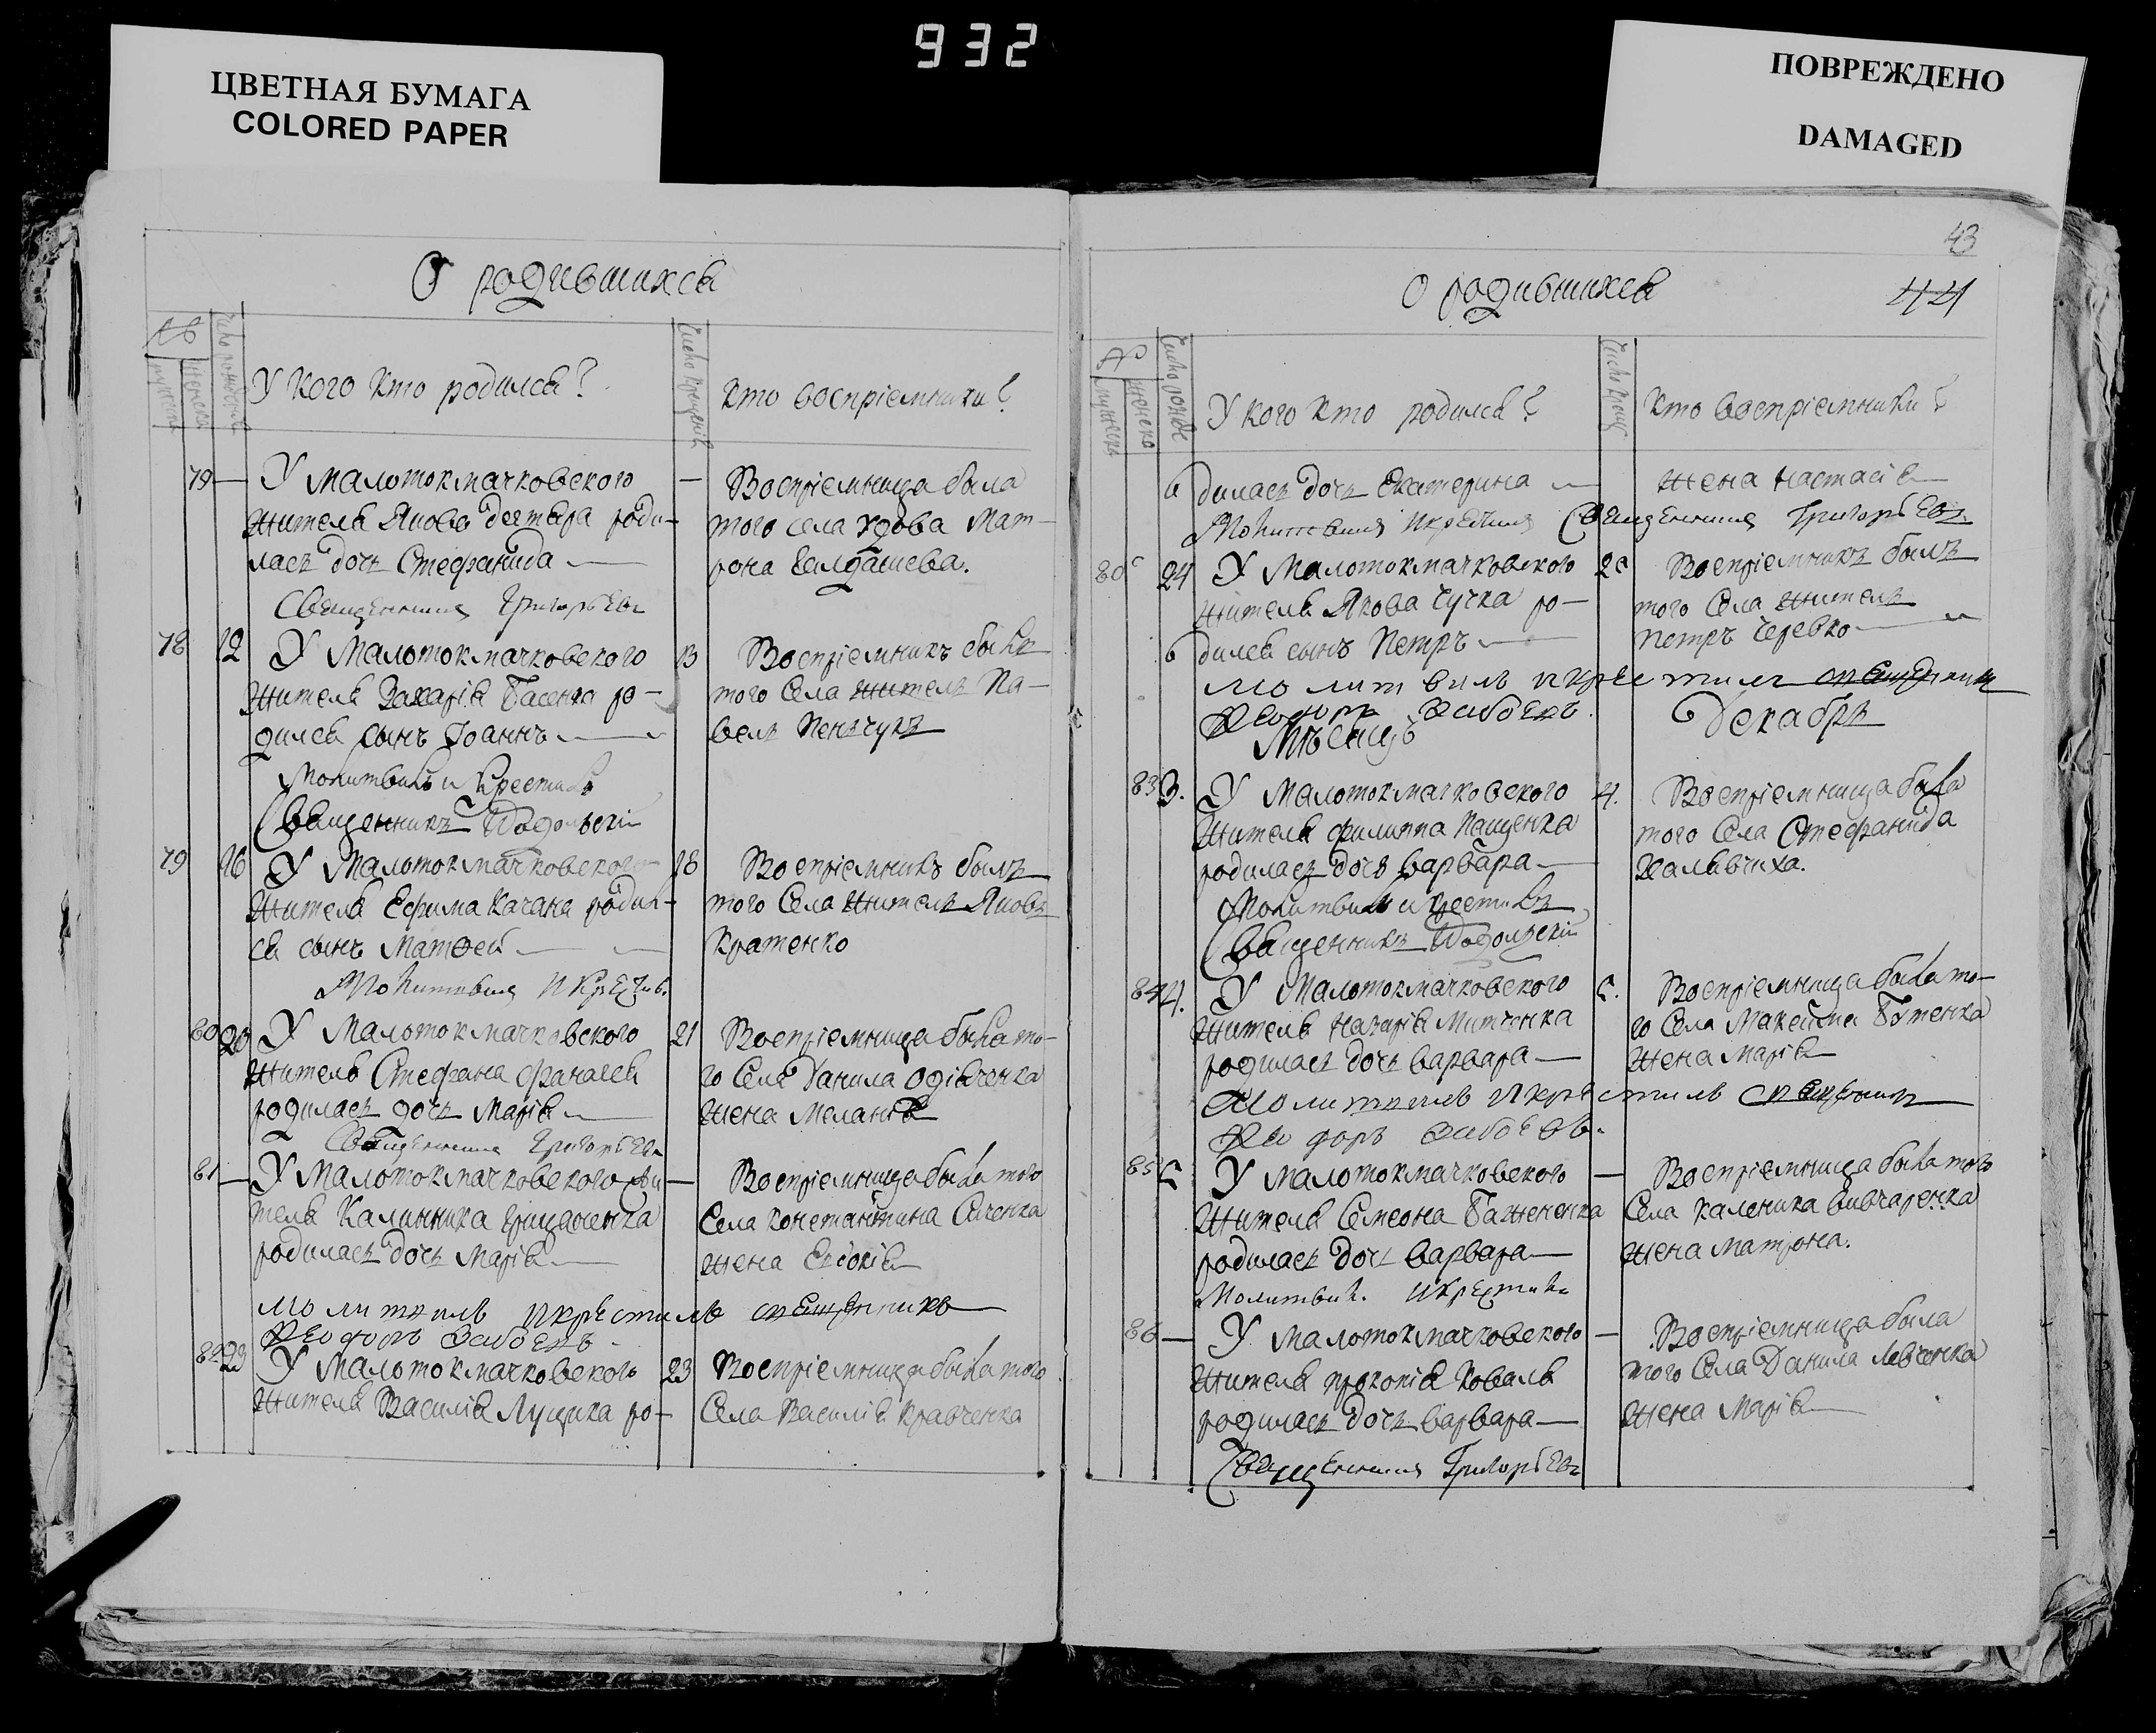 932
ЦВЕТНАЯ БУМАГА
COLORED PAPER
ПОВРЕЖДЕНО
DAMAGED
О родившихся
№
У кого кто родился?
Число крещенія
кто воспріемники?
79 — У Малотокмачковского — Воспріемница была
жителя Якова Дегтяра роди- того села удова Мат-
лась дочь Стефанида рона
Священникъ Григорьевъ
78 12 У Малотокмачковского 13 Воспріемникъ былъ
жителя Захарія Басенка ро- того Села житель Па-
дился сынъ Іоаннъ вель
Молитвилъ и Крестилъ
Священникъ
79 16 У Малотокмачковского 18 Воспріемникъ былъ
жителя Ефима Качана родил- того Села житель Яковъ
ся сынъ Матѳей Кратенко
Молитвилъ и Крестил.
80 20 У Малотокмачковского 21 Воспріемница была то-
жителя Стефана го Села Данила Одівченка
родилась дочь Марія жена Меланія
Священникъ Григорьевъ
81 — У Малотокмачковского жи- — Воспріемница была того
теля Калинника Грицаненка Села Константина
родилась дочь Марія жена
молитвилъ и крестилъ священникъ
Феодоръ
82 23 У Малотокмачковского 23 Воспріемница была того
жителя Василія Луцика ро- Села Василія Кравченка
43
О родившихся
44
№
У кого кто родился?
кто воспріемники?
дилась дочь Екатерина жена Настасія
Молитвилъ и крестилъ Священникъ Григорьевъ
80 24 У Малотокмачковского Воспріемникъ былъ
жителя Якова Чучка ро- того Села житель
дился сынъ Петръ Петръ Черевко
молитвилъ и крестилъ священникъ
Феодоръ
Мѣсяцъ Декабрь
83 3. У Малотокмачковского 4. Воспріемница была
жителя Филиппа Пащенка того Села Стефанида
родилась дочь Варвара
Молитвилъ и крестилъ
Священникъ
84 4. У Малотокмачковского 5. Воспріемница была то-
жителя Назарія Митченка го Села Максима Бутенка
родилась дочь Варвара жена Марія
Молитвилъ и крестилъ священникъ
Феодоръ
85 5 У Малотокмачковского — Воспріемница была того
жителя Семеона Баженка Села Каленика Вивчаренка
родилась дочь Варвара жена Матрона.
Молитвил. и Крестилъ
86 — У Малотокмачковского — Воспріемница была
жителя Прокопія Коваля того Села Данила Левченка
родилась дочь Варвара жена Марія
Священникъ Григорьевъ